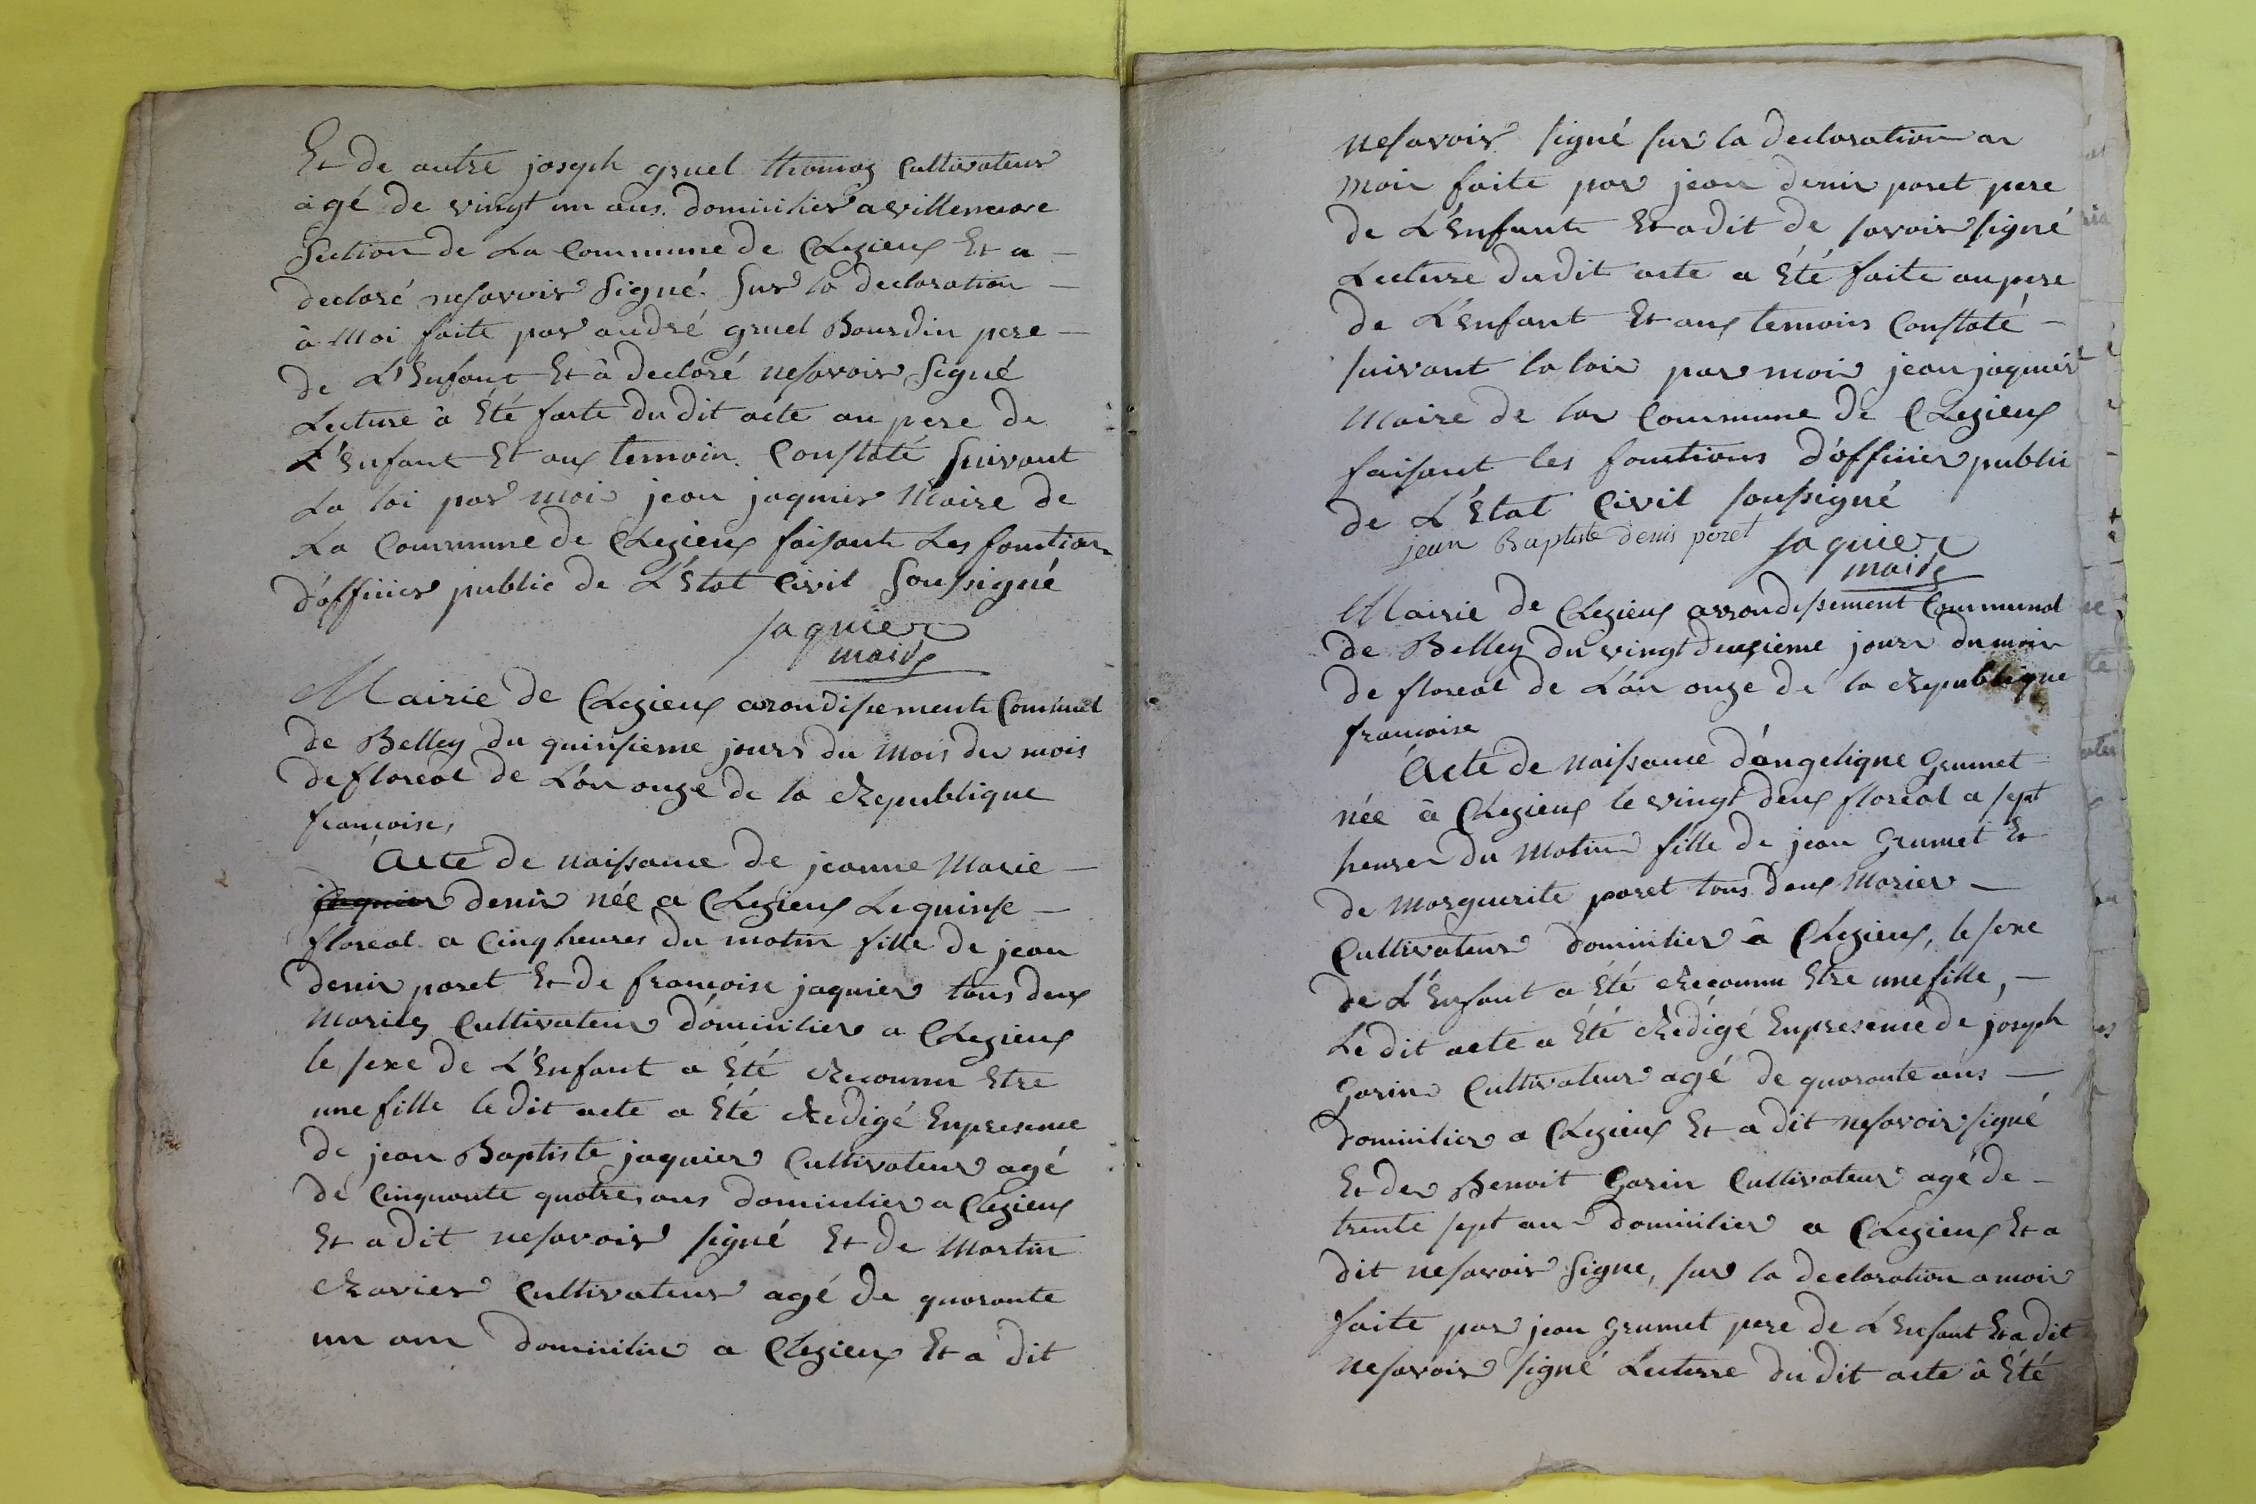 Et de autre joseph gruel thomaz Cultivateur
âgé de vingt un ans. domicilier a villeneuve
Section de La Commune de Chezieux Et a –
declaré nesavoir Signé. Sur la declaration –
à Moi faite par andré gruel Bourdin pere –
de L'Enfant Et à declaré nesavoir Signé
Lecture à Été faite du dit acte au pere de
L'Enfant Et aux temoin. Constaté Suivant
La loi par moi jean jaquier Maire de
La Commune de Chezieux faisant Les fonction
d'officier public de L'Etat Civil Soussigné
jaquier
maire
Mairie de Chezieux arondissement Communal
de Belley du quinsieme jours du mois du mois
de floreal de L'an onze de la Republique
francoise,
Acte de naissance de jeanne Marie –
jaquier denis née a Chezieux Le quinse –
floreal a Cinq heures du matin fille de jean
denis paret Et de francoise jaquier tous deux
Mariez Cultivateur domicilier a Chezieux
le sexe de L'Enfant a Été Reconnu Etre
une fille le dit acte a Été Redigé Enpresence
de jean Baptiste jaquier Cultivateur agé
de Cinquante quatre, ans domicilier a Chezieux
Et a dit nesavoir signé Et de Martin
Ravier Cultivateur agé de quarante
un ans domicilier a Chezieux Et a dit
nesavoir signé sur la declaration a
moi faite par jean denis paret pere
de L'Enfant Et a dit de savoir signé
Lecture dudit acte a Été faite au pere
de L'Enfant Et aux temoins Constaté –
suivant la loi par moi jean jaquier
Maire de la Commune de Chezieux
faisant les fonctions d'officier public
de L'Etat Civil soussigné
jean Baptiste denis peret jaquier
maire
Mairie de Chezieux arrondissement Communal
de Belley du vingt deuxieme jour du mois
de floreal de L'an onze de la Republique
francoise
Acte de naissance d'angelique Grumet
née à Chezieux le vingt deux floréal a sept
heures du matin fille de jean Grumet Et
de Marguerite paret tous deux Marier –
Cultivateur domicilier à Chezieux, le sexe
de L'Enfant a Été Reconnu Etre une fille, –
Le dit acte a Été Redigé Enpresence de joseph
Garin Cultivateur agé de quarante ans –
domicilier a Chezieux Et a dit nesavoir signé
Et de Benoit Garin Cultivateur agé de –
trente sept ans domicilier a Chezieux Et a
dit nesavoir Signe, sur la declaration a moi
faite par jean Grumet pere de L'Enfant Et a dit
nesavoir signé Lecture du dit acte à Été